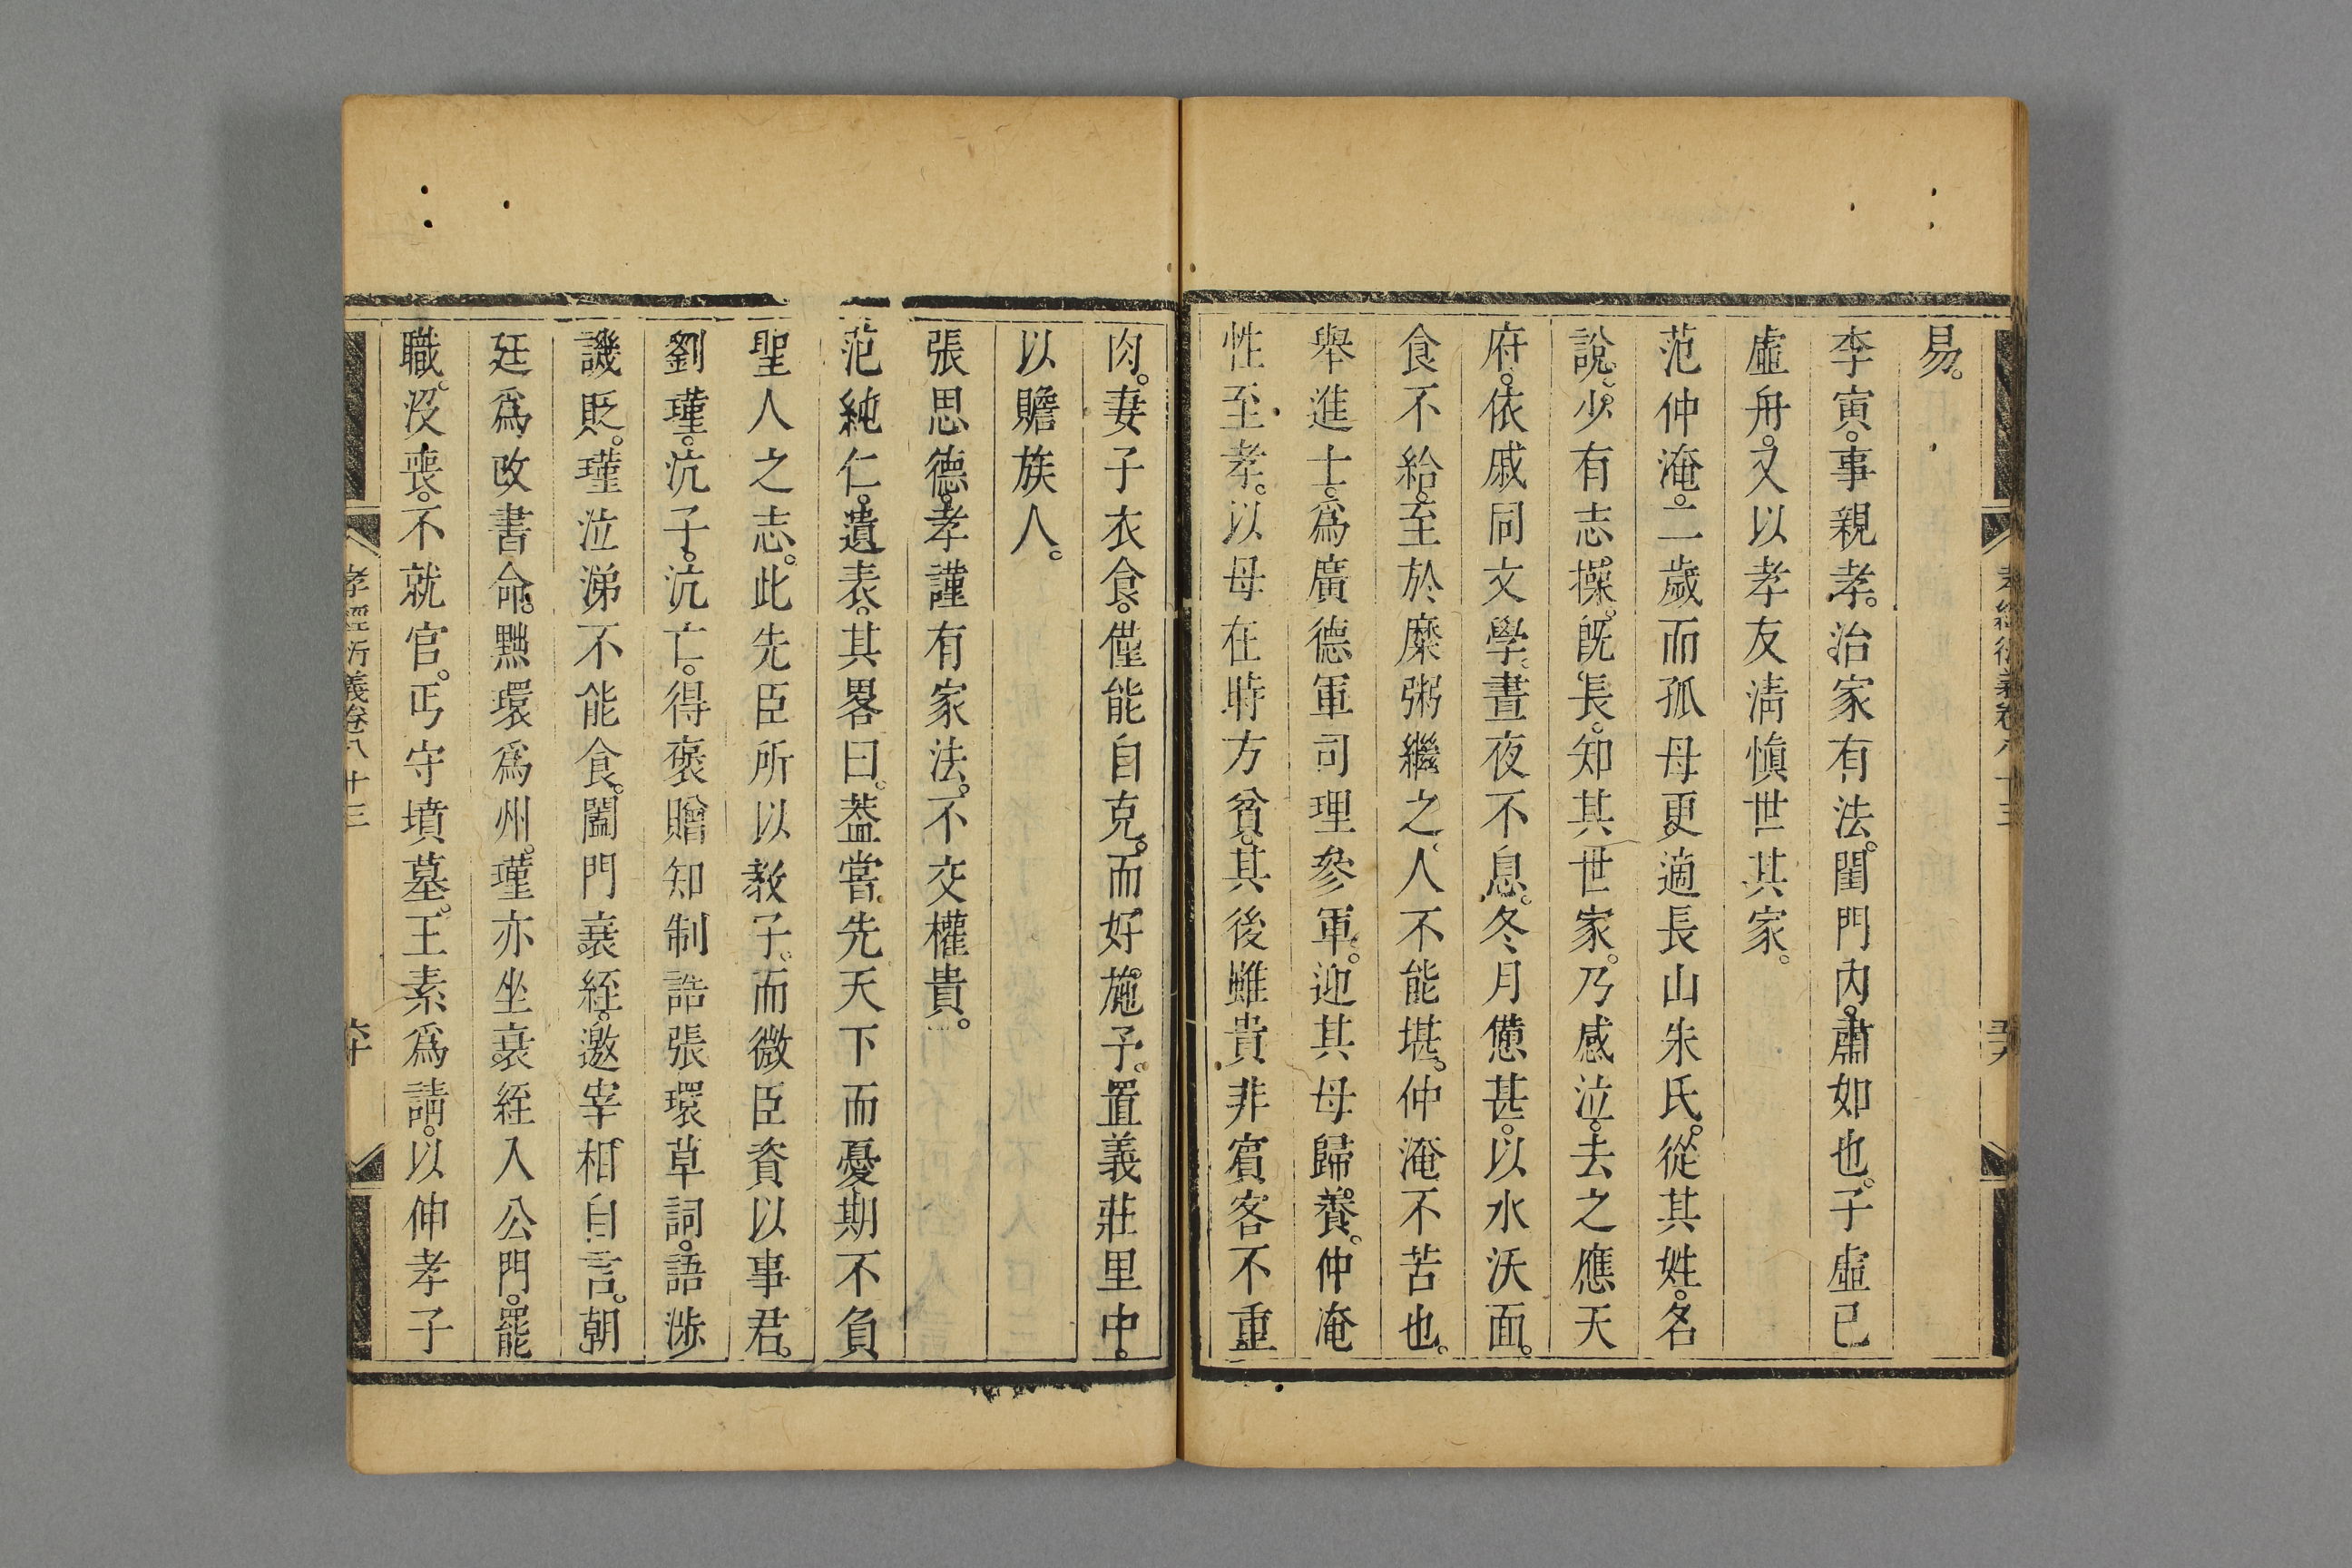 易。
李寅。事親孝。治家有法。閨門內。肅如也。子虛已
虛舟。又以孝友淸愼世其家。
范仲淹。二歲而孤母更適長山朱氏。從其姓。名
說。少有志操。旣長。知其世家。乃感泣。去之應天
府。依戚同文學。晝夜不息。冬月憊甚。以水沃面。
食不給。至於糜粥繼之。人不能堪。仲淹不苦也。
舉進士。爲廣德軍司理參軍。迎其母歸養。仲淹
性至孝。以母在時方貧。其後雖貴非賓客不重
肉。妻子衣食。僅能自克。而好施予。置義莊里中。
以贍族人。
張思德。孝謹有家法。不交權貴。
范純仁。遺表。其畧曰。葢嘗。先天下而憂期不負
聖人之志。此先臣所以敎子。而微臣資以事君。
劉瑾。沆子。沆亡。得褒贈知制誥張環草詞。語涉
譏貶。瑾泣涕不能食。闔門衰絰。邀宰相自言。朝
廷爲改書命。黜環爲州。瑾亦坐衰絰入公門。罷
職。沒喪。不就官。丐守墳墓。王素爲請。以伸孝子
孝經衍義卷八十三
六十